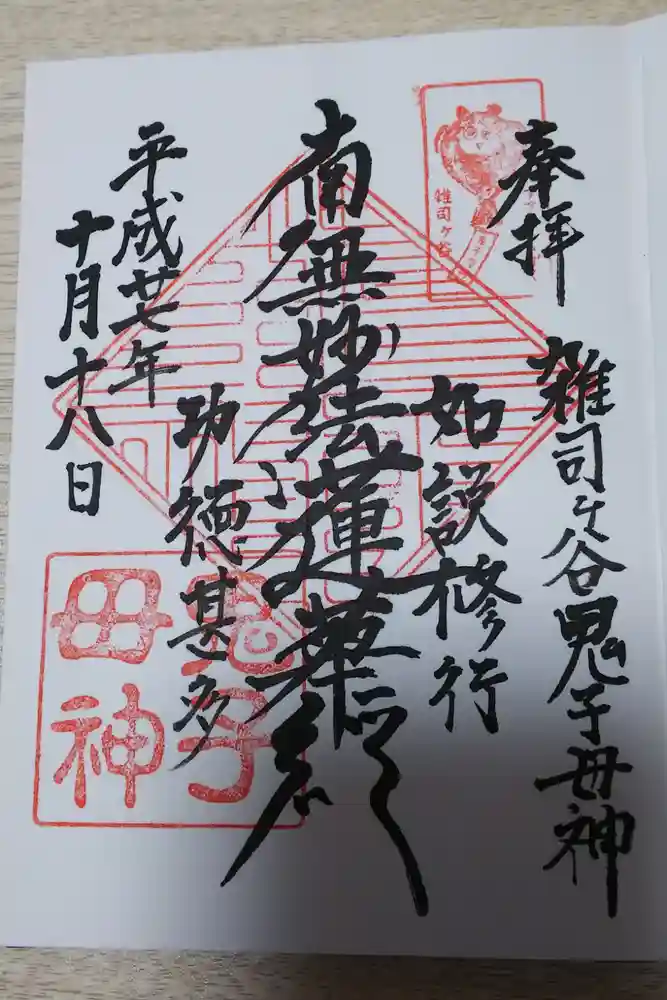 奉拝
雑司ヶ谷鬼子母神
如説修行
南無妙法蓮華経
功徳甚多
平成廿七年
十月十八日
雑司ヶ谷
鬼子
母神